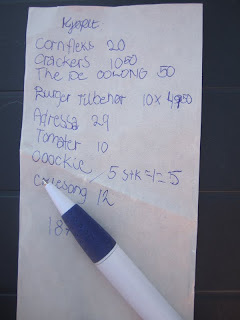 Kjøpt
Cornfleks 20
Crackers 1050
The De OOLONG 50
Burger Tilbehør 10 x 4950
Adressa 29
Tomater 10
Ooockie 5 stk =1= 5
12